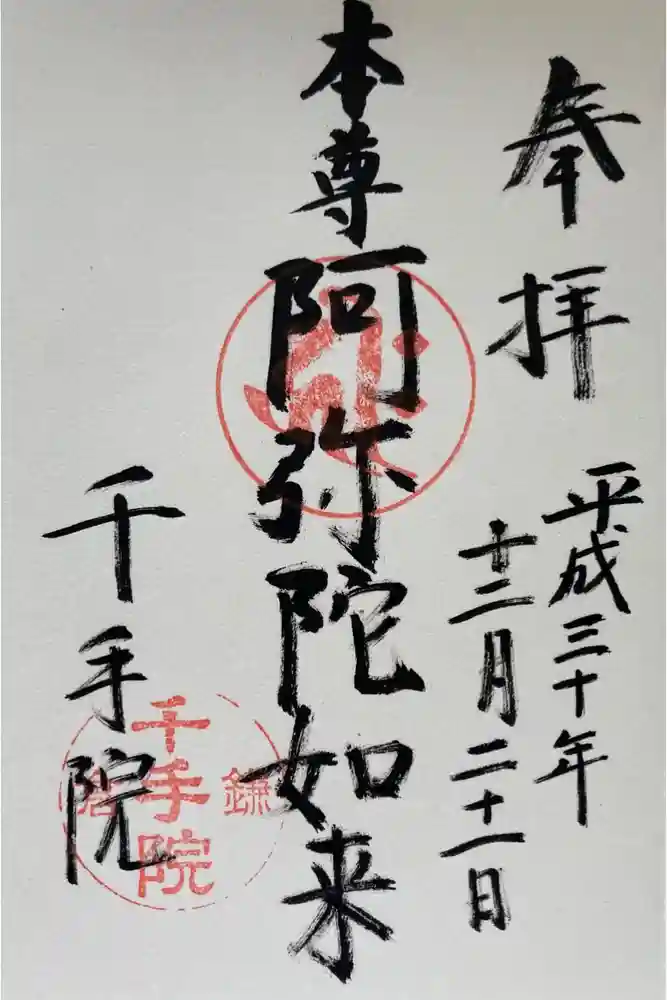 奉拝
平成三十年
十二月二十一日
本尊
阿弥陀如来
千手院
鎌倉
千手院